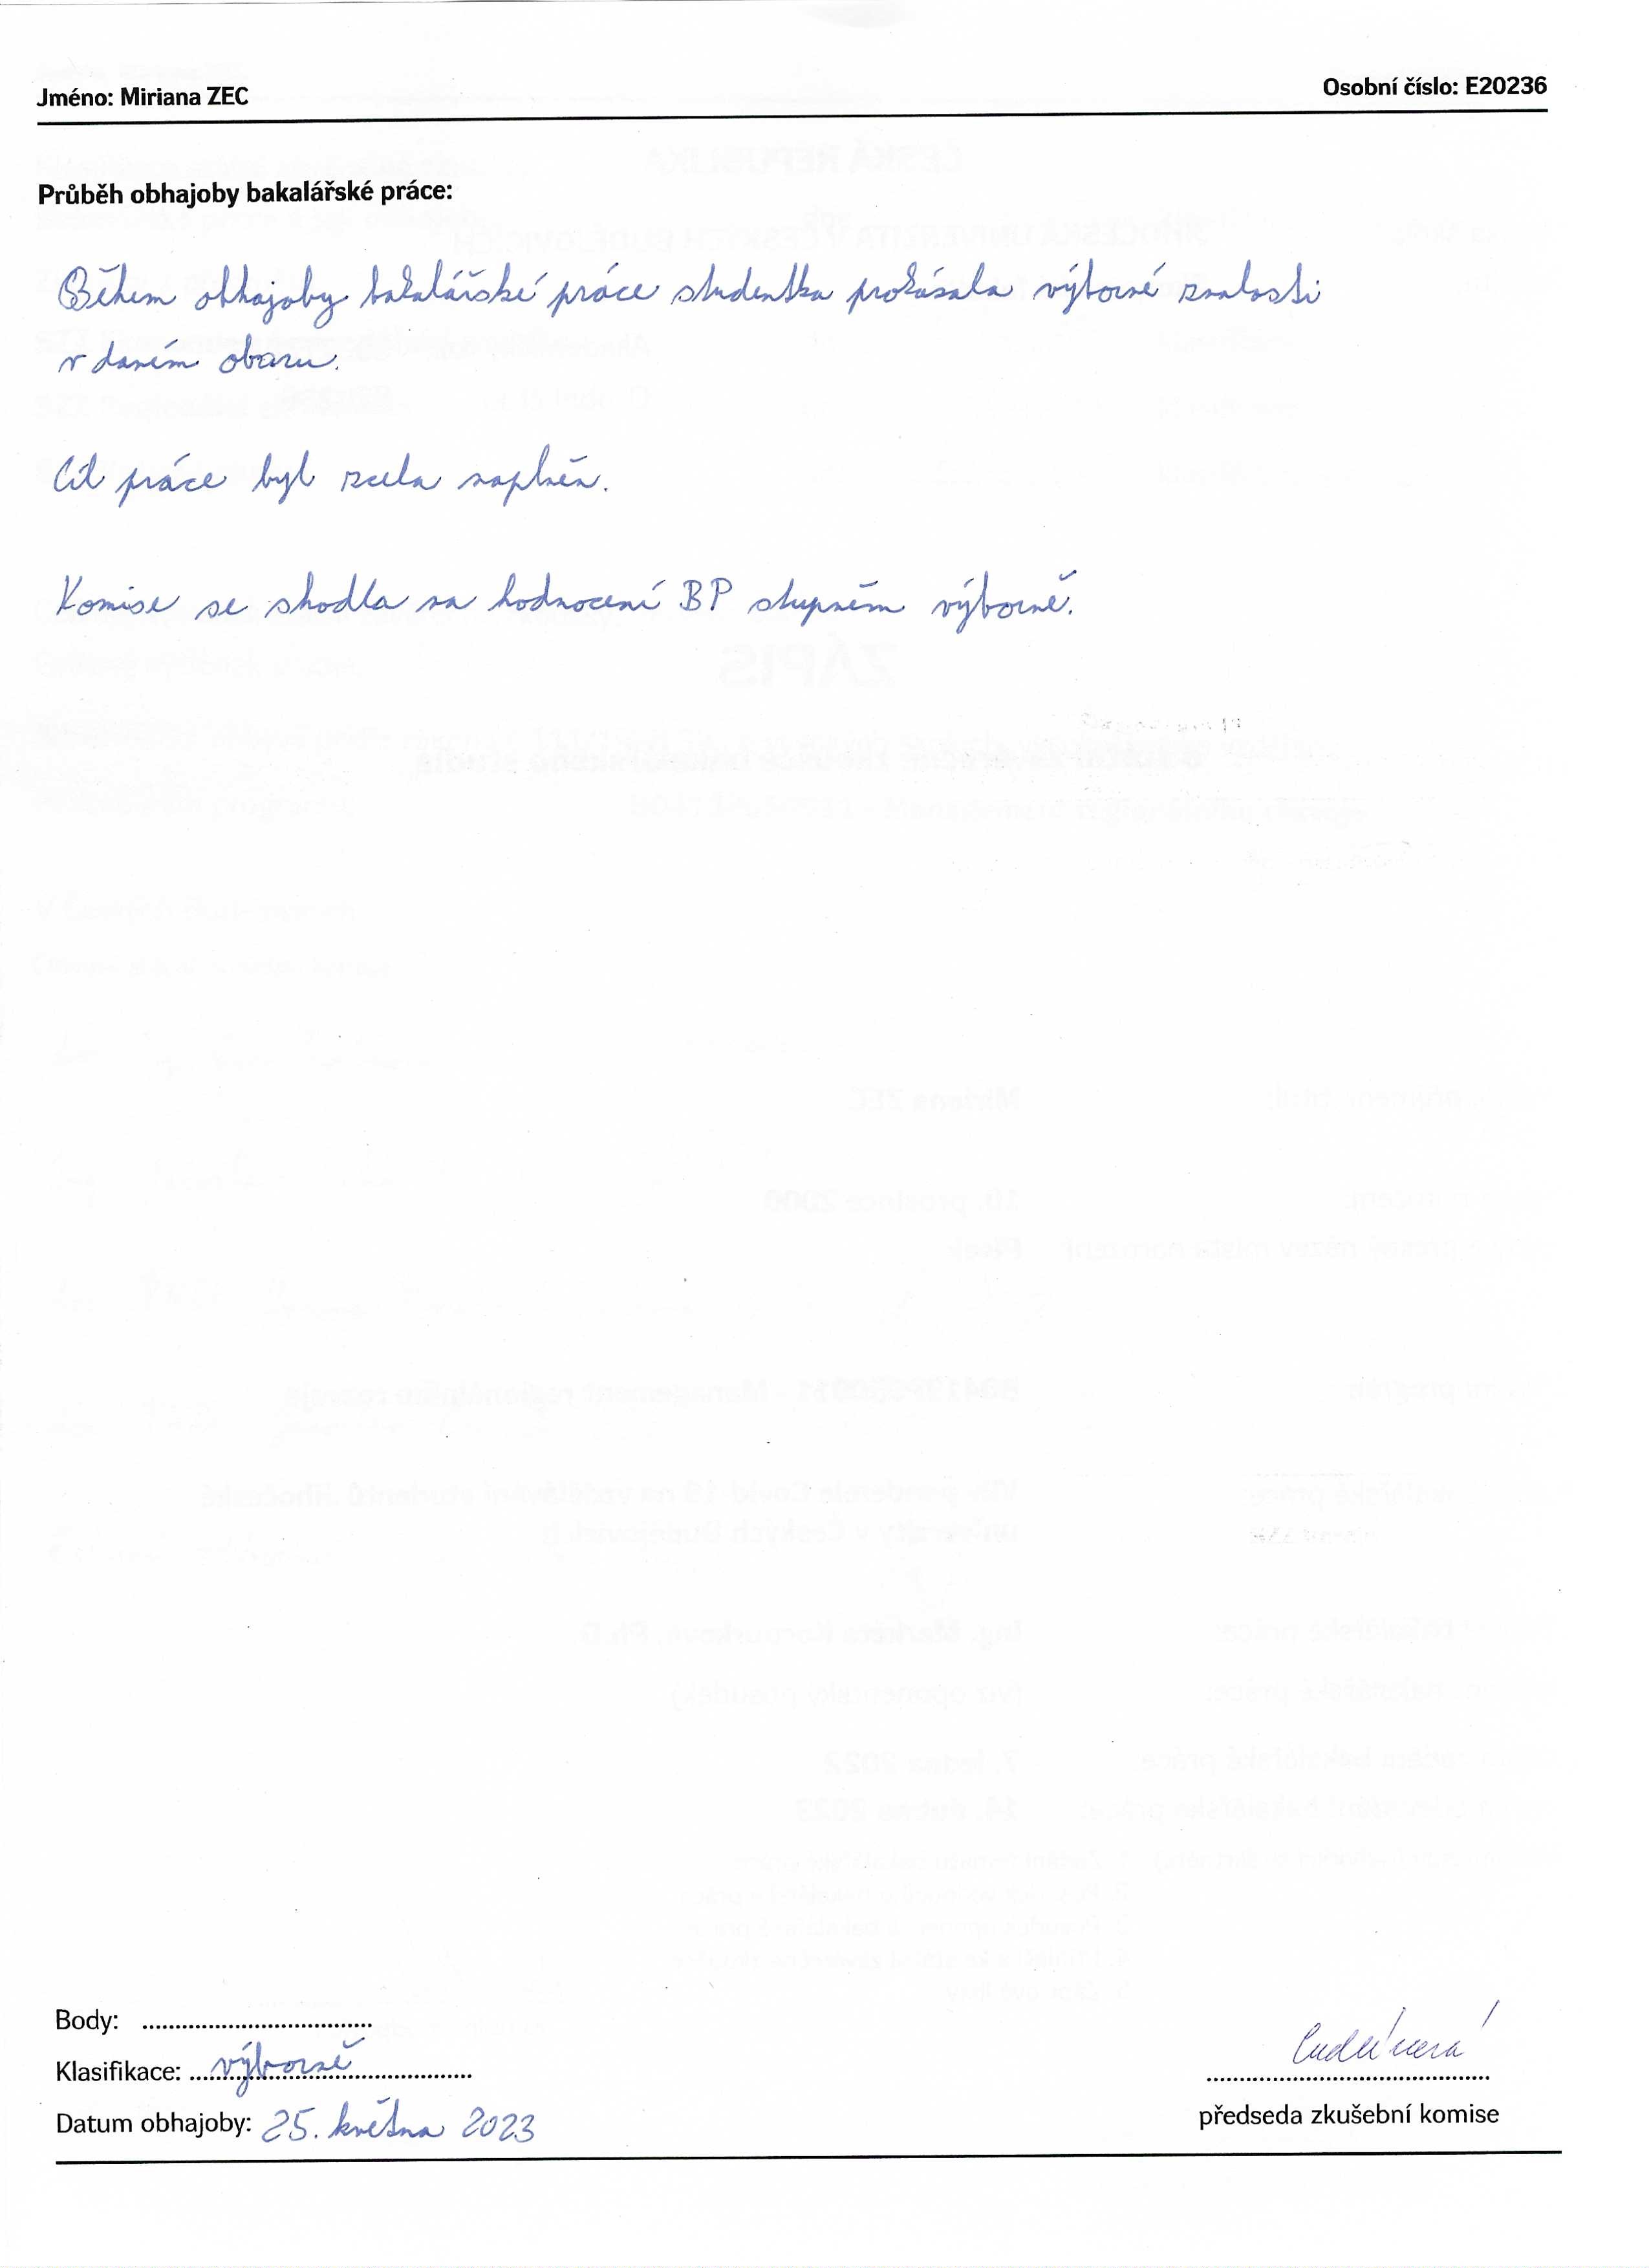 Jméno: Miriana ZEC
Osobní číslo: E20236
Průběh obhajoby bakalářské práce:
Během obhajoby bakalářské práce studentka prokázala výborné znalosti
v daném oboru.
Cíl práce byl zcela naplněn.
Komise se shodla na hodnocení BP stupněm výborně.
Body: ..................................
Klasifikace: výborně
Datum obhajoby: 25. května 2023
předseda zkušební komise